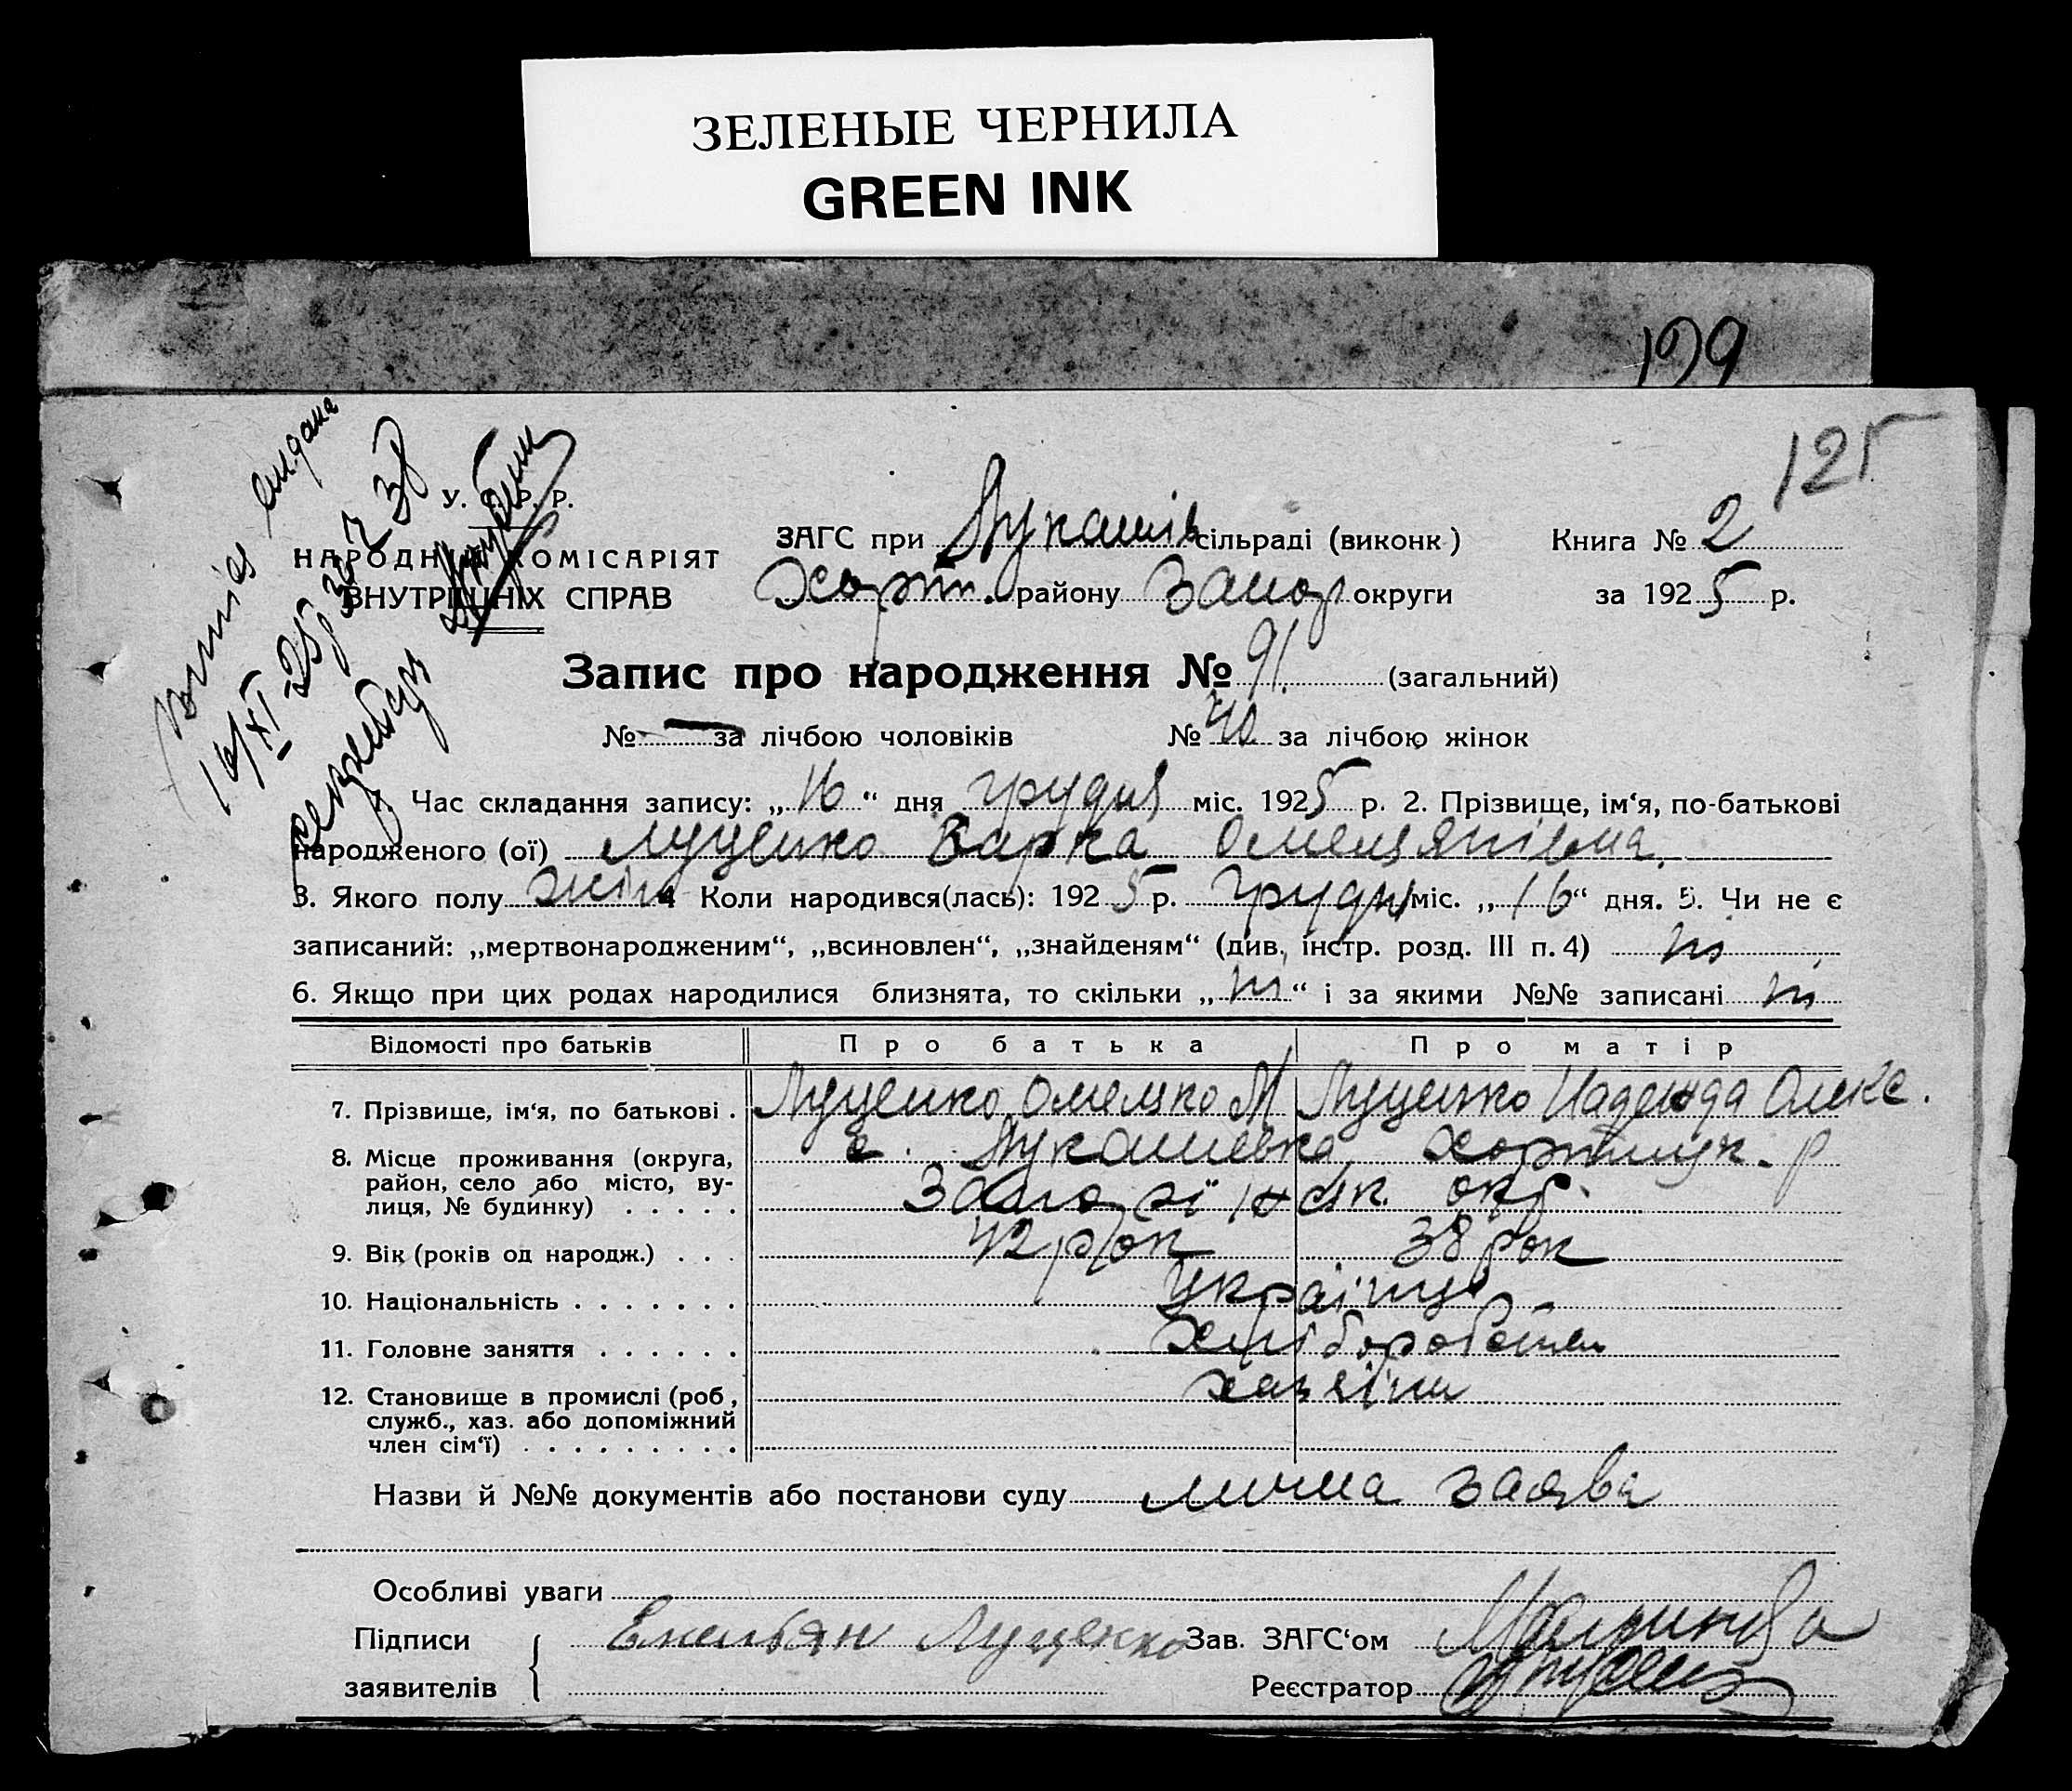 ЗЕЛЕНЫЕ ЧЕРНИЛА
GREEN INK
199
125
У. С. Р. Р.
НАРОДНІЙ КОМІСАРІЯТ
ВНУТРІШНІХ СПРАВ
ЗАГС при Лукашів сільраді (виконк)
Книга № 2
Хорт. району Запор округи
за 1925 р.
Запис про народження № 91. (загальний)
№ — за лічбою чоловіків № 40 за лічбою жінок
Час складання запису: „16“ дня грудня міс. 1925 р. 2. Прізвище, ім‘я, по-батькові
народженого (ої) Луценко Варка Омелянівна.
3. Якого полу жін 4 Коли народився(лась): 1925 р. грудня міс. „16“ дня. 5. Чи не є
записаний: „мертвонародженим“, „всиновлен“, „знайденям“ (див. інстр. розд. III п. 4) ні
6. Якщо при цих родах народилися близнята, то скільки „ні“ і за якими №№ записані ні
Відомості про батьків Про батька Про матір
7. Прізвище, ім‘я, по батькові . Луценко Омелько М Луценко Надежда Олекс.
8. Місце проживання (округа, с. Лукашевка Хортицьк. р
район, село або місто, ву-
лиця, № будинку) . . . . . Запорізьк. окр.
9. Вік (років од народж.) . . . 42 рок 38 рок
10. Національність . . . . . . . Українці
11. Головне заняття . . . . . .
12. Становище в промислі (роб, хазяїни
служб., хаз. або допоміжний
член сім‘ї) . . . . . . . . .
Назви й №№ документів або постанови суду лична заява
Особливі уваги
Підписи Емельян Луценко Зав. ЗАГС‘ом
заявителів Реєстратор